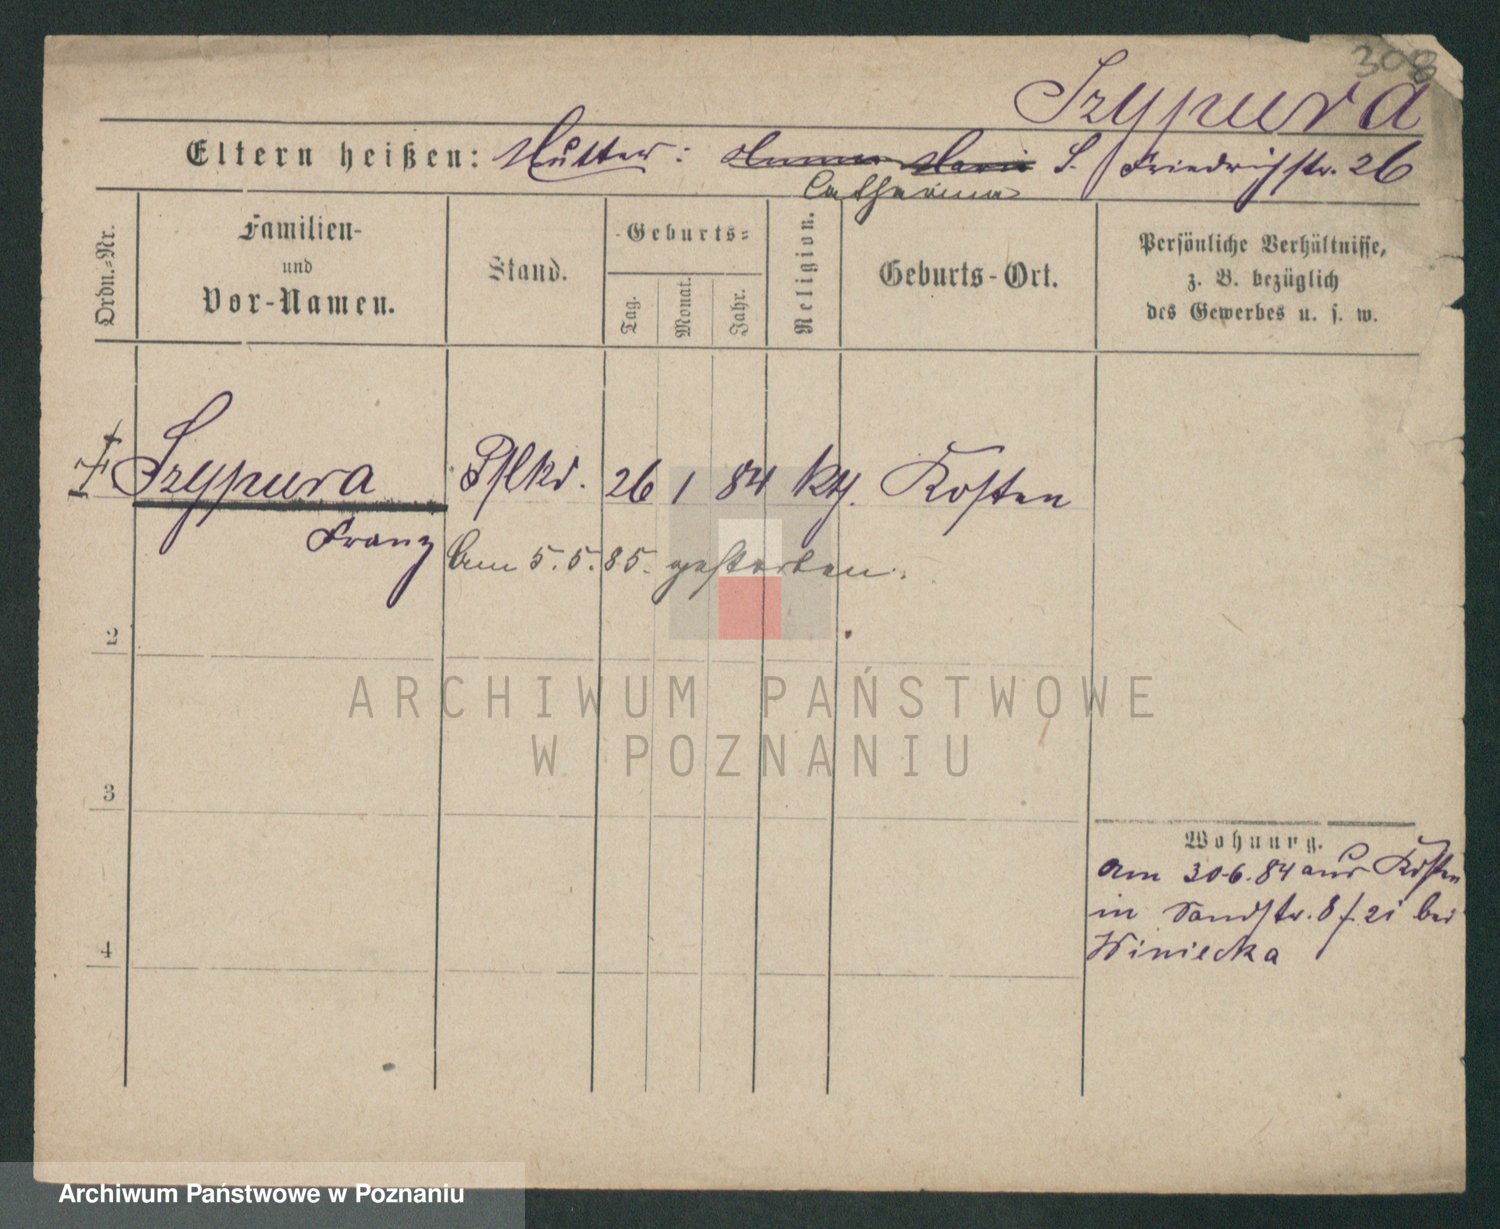 308
Szypura
Eltern heißen: Mutter: Anna Maria S. Friedrichstr. 26
Catharina
Ordn.-Nr.
Familien-
und
Vor-Namen.
Stand.
Geburts-
Tag.
Monat.
Jahr.
Religion.
Geburts-Ort.
Persönliche Verhältnisse,
z. B. bezüglich
des Gewerbes u. s. w.
1 Szypura Pflkd. 26 1 84 kth. Kosten
Franz
am 5.5.85. gestorben.
2
ARCHIWUM PAŃSTWOWE
W POZNANIU
3
Wohnung.
am 30.6.84 aus Kosten
in Sandstr. 8 f. 21 bei
Winiecka
4
Archiwum Państwowe w Poznaniu